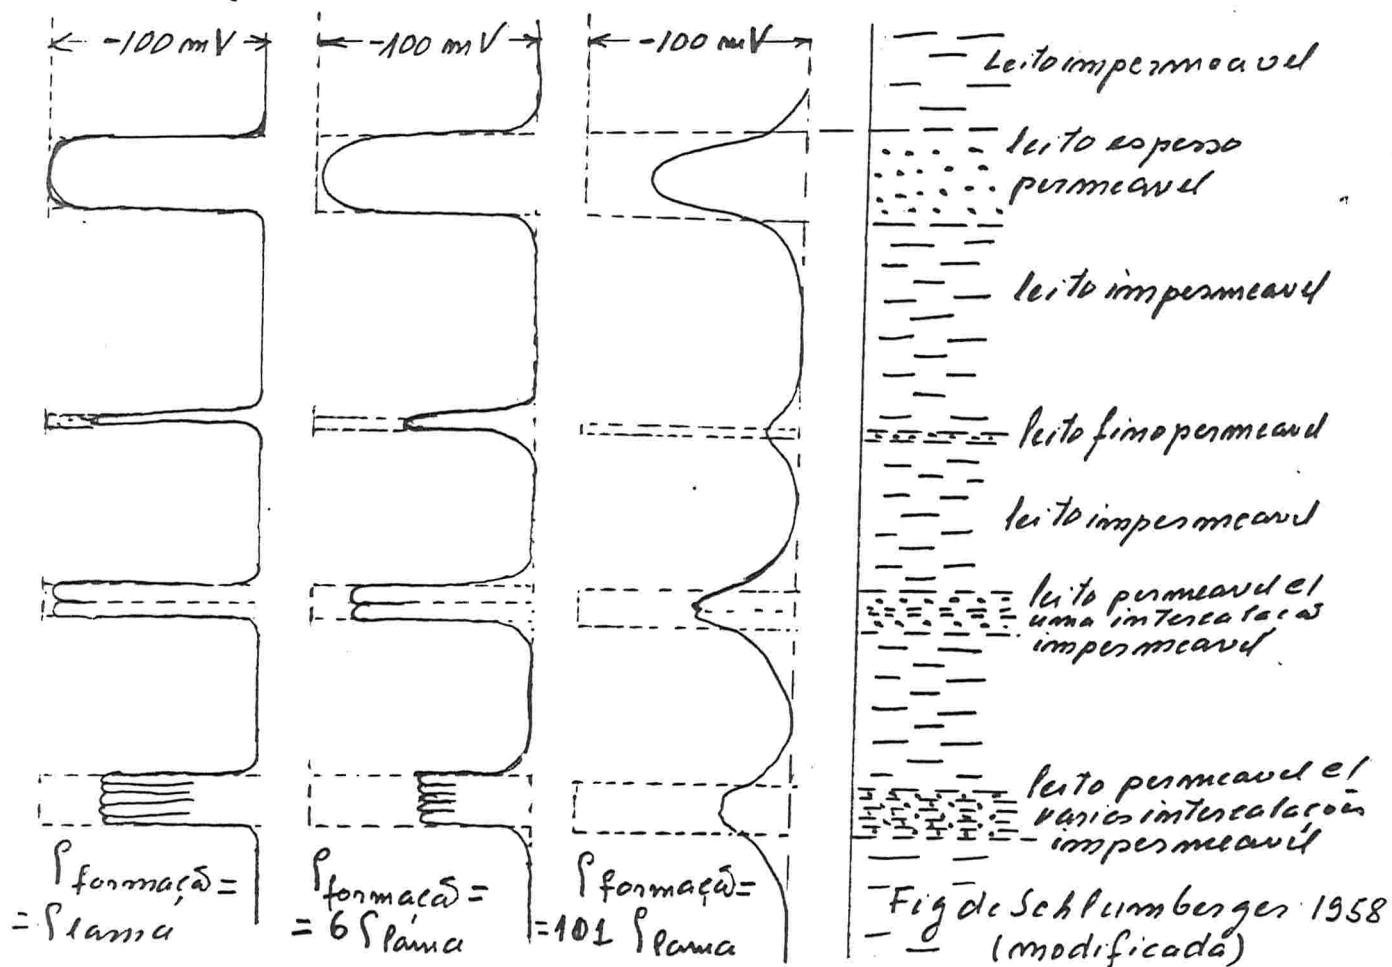 -100 mV
-100 mV
-100 mV
Leito impermeavel
leito espesso
permeavel
leito impermeavel
leito fino permeavel
leito impermeavel
leito permeavel c/
uma intercalação
impermeavel
leito permeavel c/
varias intercalações
impermeavel
ρ formação =
= ρ lama
ρ formação =
= 6 ρ lama
ρ formação =
= 101 ρ lama
Fig de Schlumberger 1958
(modificada)